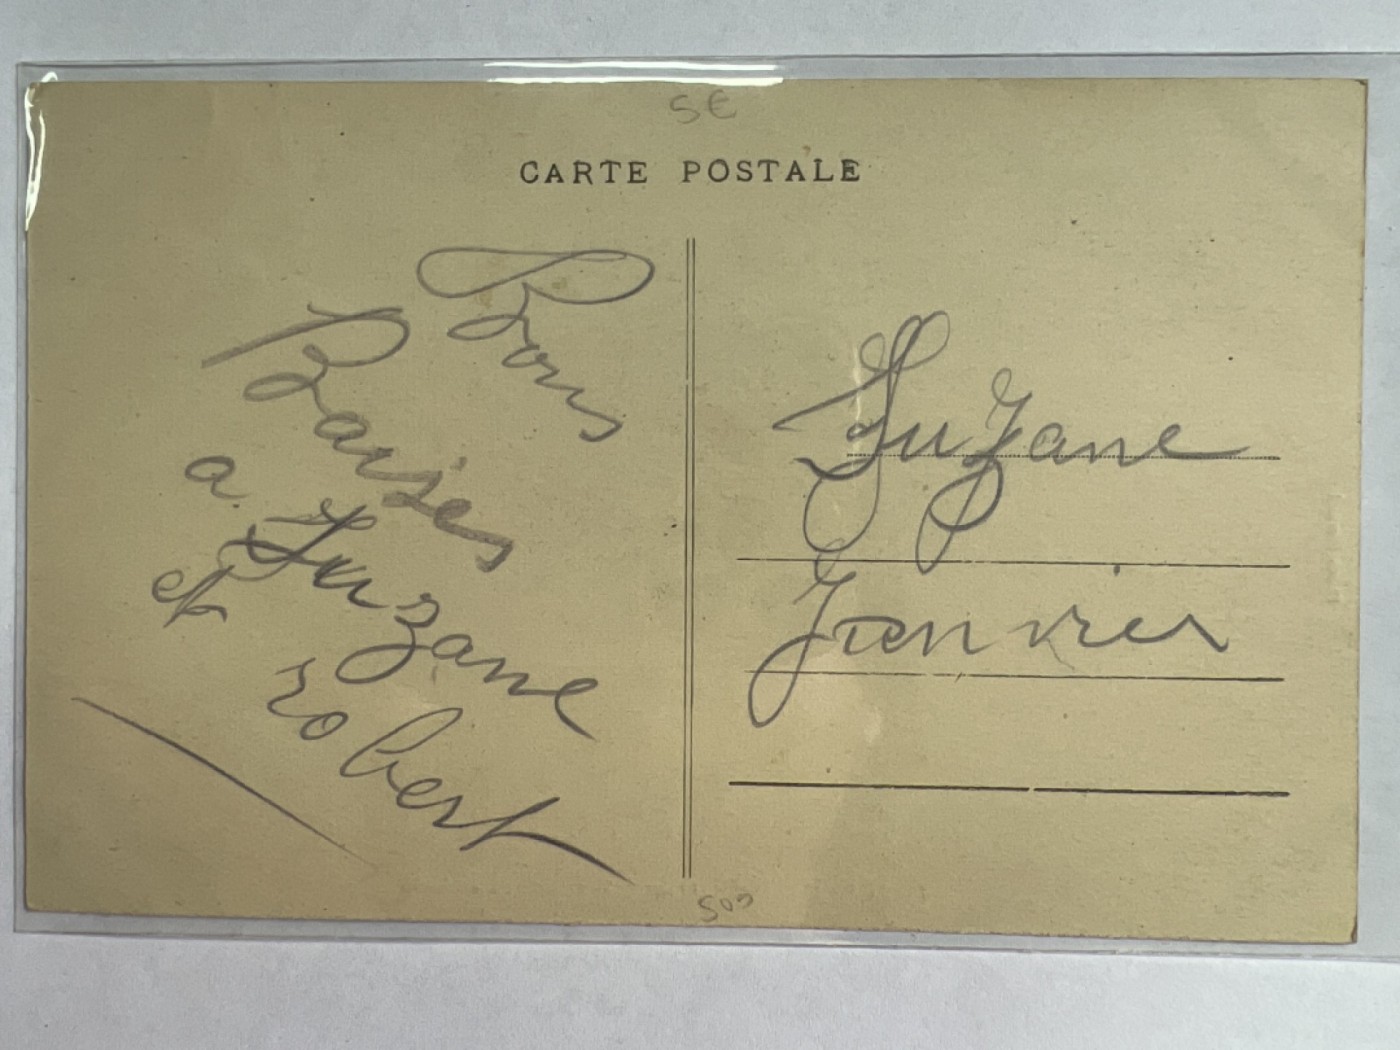 5€
CARTE POSTALE
Bons
Baisés
a Suzane
et
robert
Suzane
Janvier